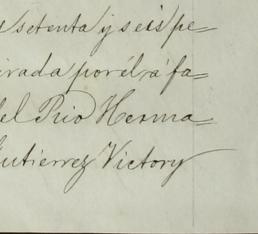 setenta y seis pe=
irada por él, á fa=
del Pio Herma=
Gutierrez Victory